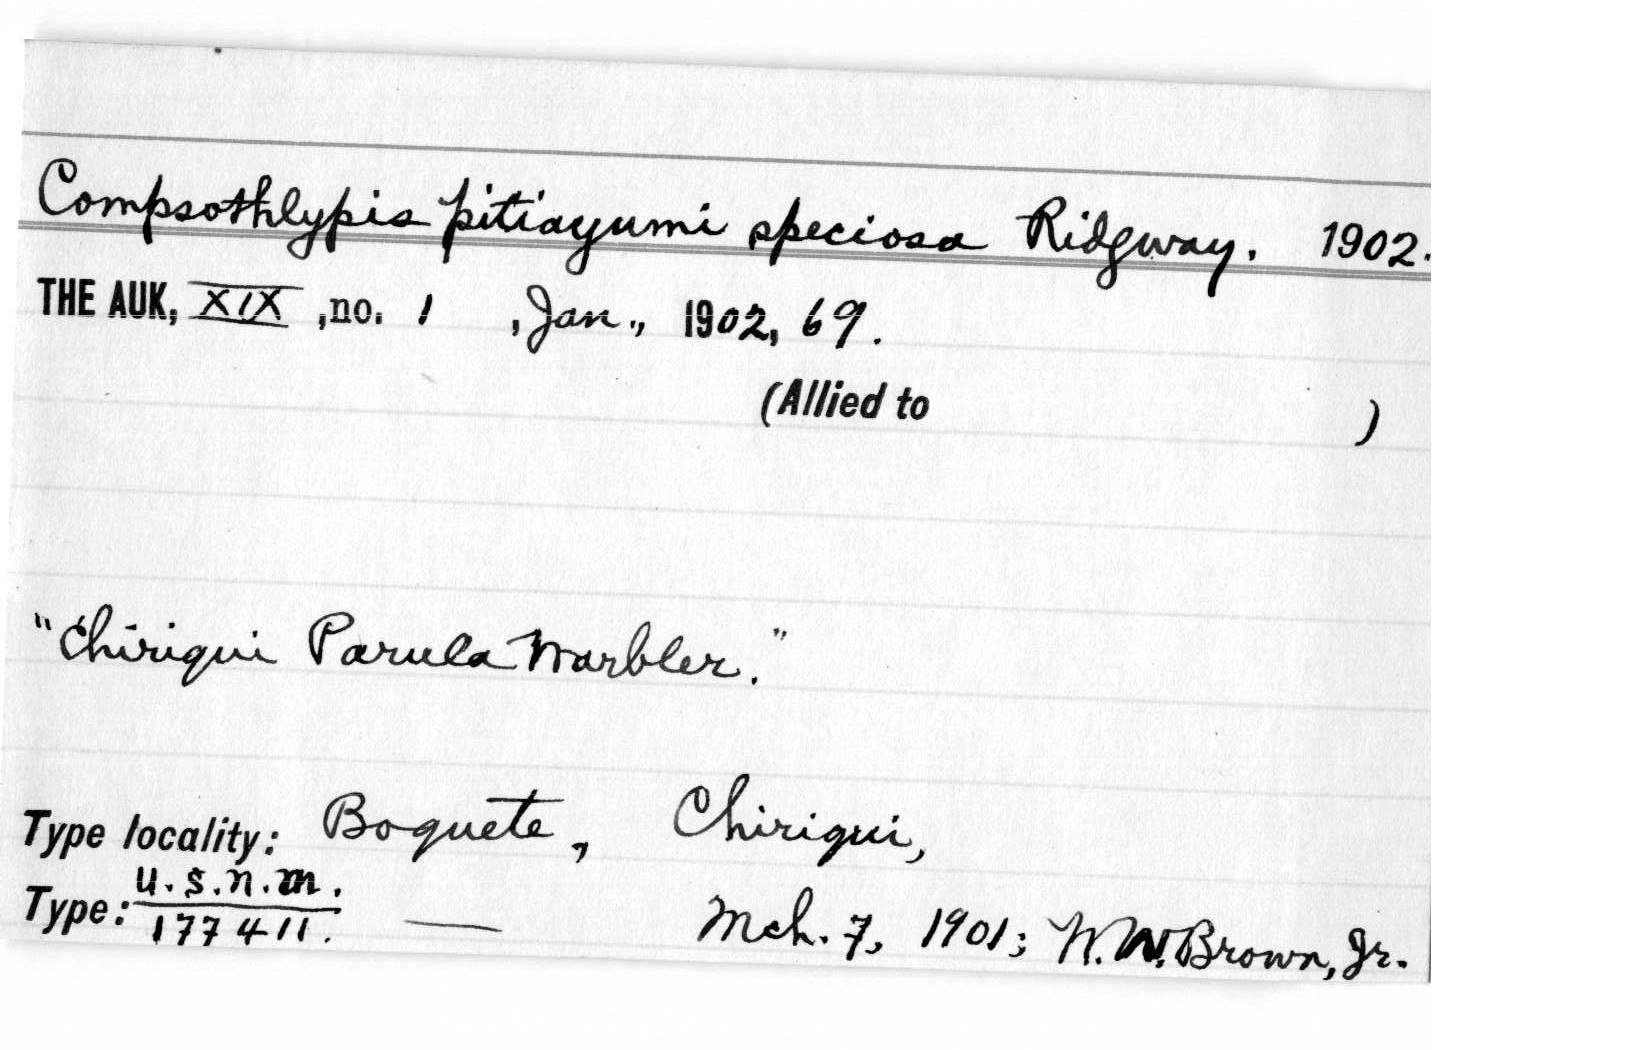 Compsothlypis pitiayumi speciosa Ridgway. 1902.
THE AUK, XIX ,no. 1 , Jan., 1902, 69.
(Allied to )
"Chiriqui Parula Warbler."
Type locality: Boquete, Chiriqui,
Type: U.S.N.M. 177411. — Mch. 7, 1901; W.W. Brown, Jr.